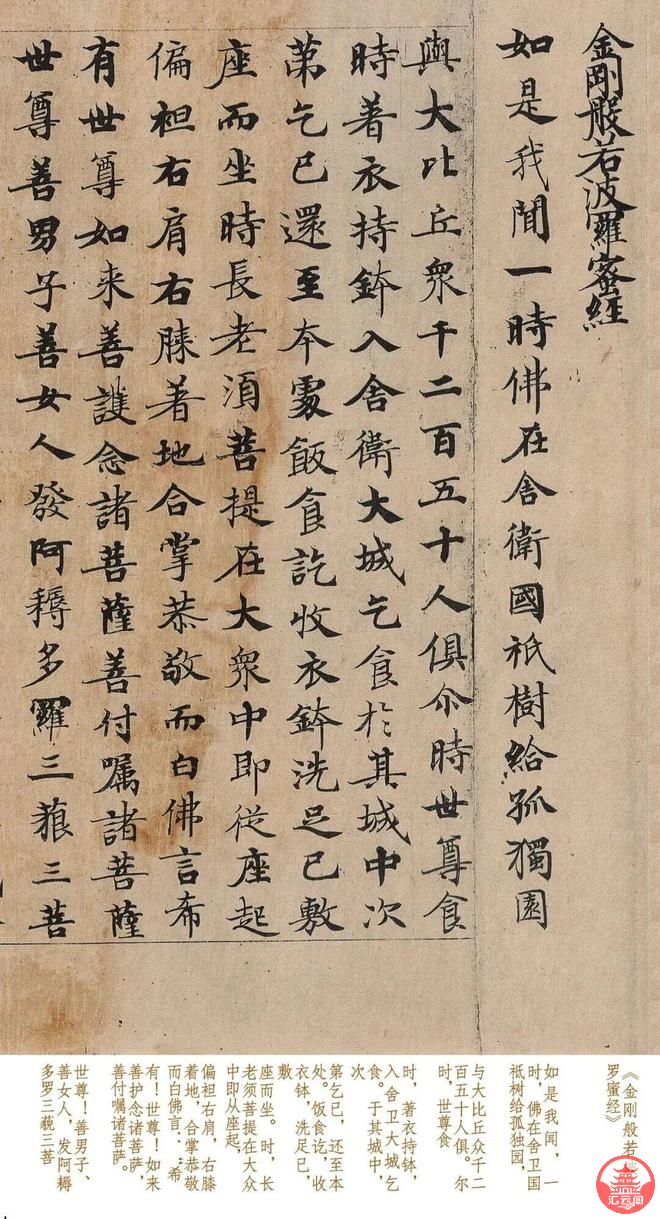 金剛般若波羅蜜經
如是我聞一時佛在舍衛國祇樹給孤獨園
與大比丘衆千二百五十人俱尒時世尊食
時著衣持鉢入舍衛大城乞食於其城中次
苐乞已還至本處飯食訖收衣鉢洗足已敷
座而坐時長老須菩提在大衆中即從座起
偏袒右肩右膝著地合掌恭敬而白佛言希
有世尊如来善護念諸菩薩善付嘱諸菩薩
世尊善男子善女人發阿耨多羅三藐三菩
《金刚般若
罗蜜经》
如是我闻，一
时，佛在舍卫国
祗树给孤独园，
与大比丘众千二
百五十人俱。尔
时，世尊食
时，著衣持钵，
入舍卫大城乞
食。于其城中，
次
第乞已，还至本
处。饭食讫，收
衣钵，洗足已，
敷
座而坐。时，长
老须菩提在大众
中即从座起，
偏袒右肩，右膝
着地，合掌恭敬
而白佛言：“希
有！世尊！如来
善护念诸菩萨，
善付嘱诸菩萨。
世尊！善男子、
善女人，发阿耨
多罗三藐三菩
汇云阁